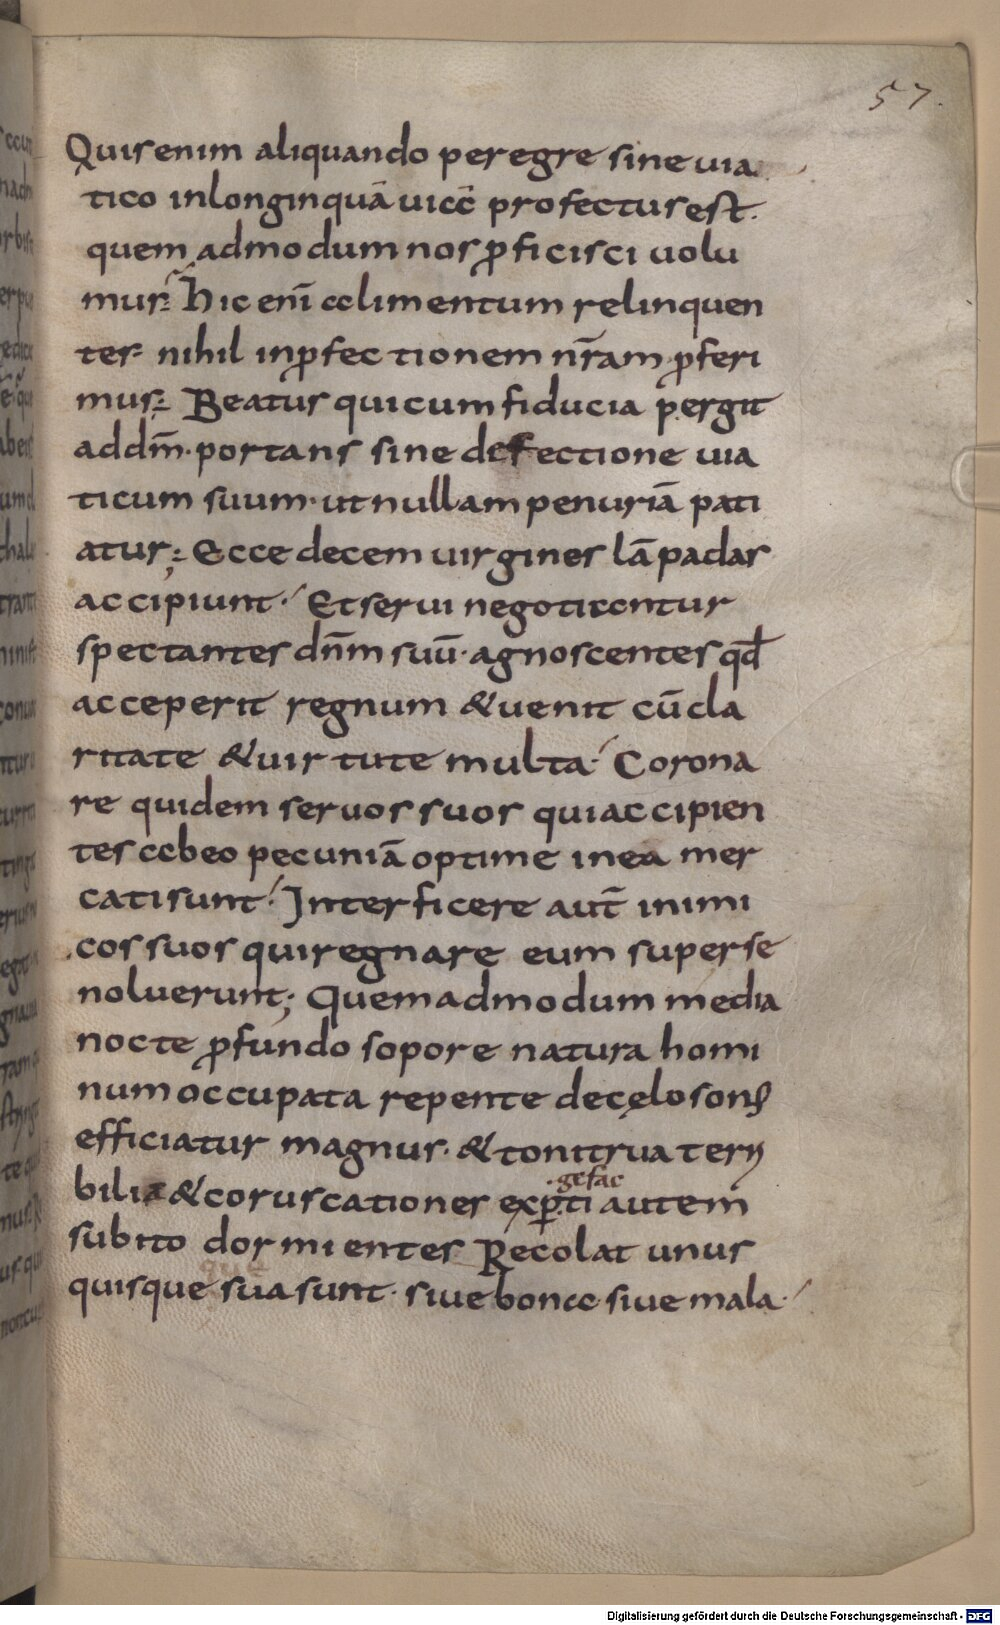 57.
Quis enim aliquando peregre sine uia
tico in longinquā uia profectus est.
quem admodum nos ꝓficisci uolu
mus: Hic enī alimentum relinquen
tes nihil in ꝓfectionem nr̄am ꝓferi
mus: Beatus qui cum fiducia pergit
ad dm̄. portans sine defectione uia
ticum suum. ut nullam penuriā pati
atur; Ecce decem uirgines lāpadas
accipiunt. Et serui negotiantur
spectantes dn̄m suū. agnoscentes qđ
acceperit regnum & uenit cū cla
ritate & uirtute multa. Corona
re quidem seruos suos qui accipien
tes ab eo pecuniā optime in ea mer
cati sunt. Interficere aut̄ inimi
cos suos qui regnare eum super se
noluerunt; Quemadmodum media
nocte ꝓfundo sopore natura homi
num occupata repente de cęlo sonꝰ
efficiatur magnus. & tonitrua terri
bilia & coruscationes exꝑ.ti autem
.gefac
subito dormientes Recolat unus
quisque sua sunt. siue bona siue mala.
que
Digitalisierung gefördert durch die Deutsche Forschungsgemeinschaft - DFG